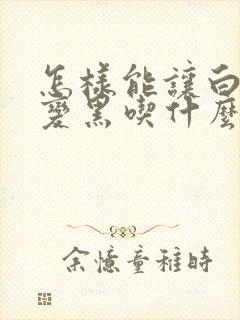 怎樣能讓白
變黑喫什麼
余憶童稚時